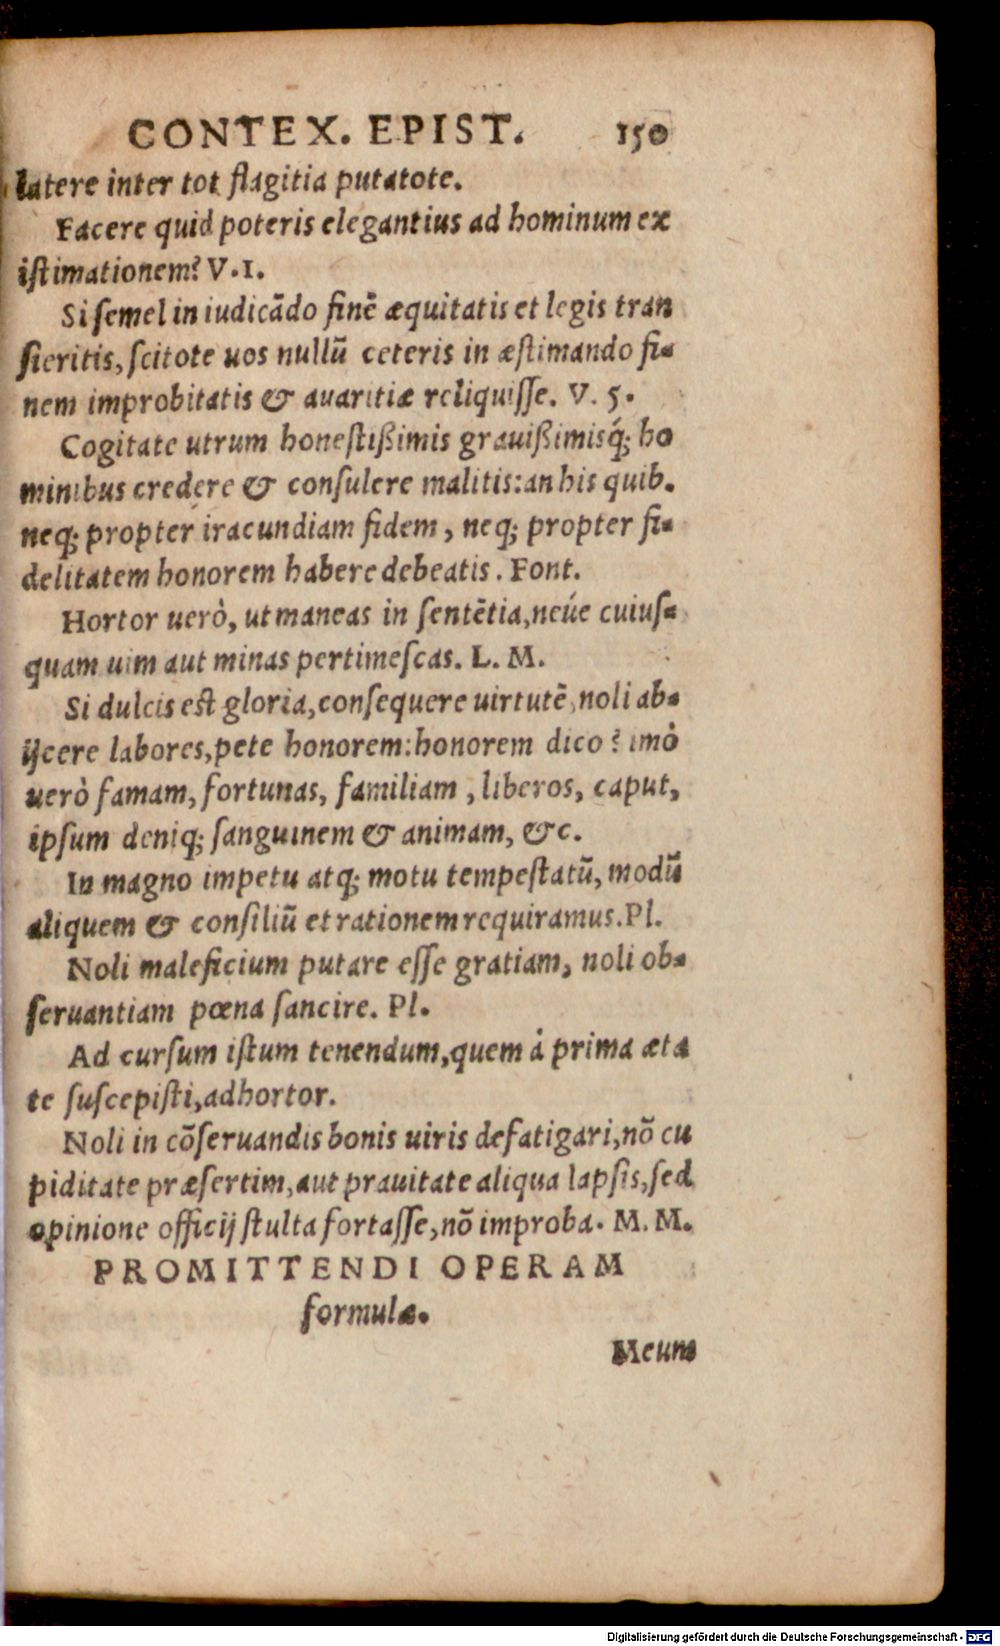 CONTEX. EPIST. 150
latere inter tot flagitia putatote.
Facere quid poteris elegantius ad hominum ex
iſtimationem? V. I.
Si ſemel in iudicādo finē æquitatis et legis tran
ſieritis, ſcitote uos nullū ceteris in æſtimando fi-
nem improbitatis & auaritiæ reliquiſſe. V. 5.
Cogitate utrum honeſtißimis grauißimisq́; ho
minibus credere & conſulere malitis: an his quib.
neq; propter iracundiam fidem, neq; propter fi-
delitatem honorem habere debeatis. Font.
Hortor uerò, ut maneas in ſentētia, neúe cuiuſ-
quam uim aut minas pertimeſcas. L. M.
Si dulcis eſt gloria, conſequere uirtutē, noli ab-
ijcere labores, pete honorem: honorem dico? imò
uerò famam, fortunas, familiam, liberos, caput,
ipſum deniq; ſanguinem & animam, &c.
In magno impetu atq; motu tempeſtatū, modū
aliquem & conſiliū et rationem requiramus. Pl.
Noli maleficium putare eſſe gratiam, noli ob-
ſeruantiam pœna ſancire. Pl.
Ad curſum iſtum tenendum, quem à prima æta
te ſuſcepiſti, adhortor.
Noli in cōſeruandis bonis uiris defatigari, nō cu
piditate præſertim, aut prauitate aliqua lapſis, ſed
opinione officij ſtulta fortaſſe, nō improba. M. M.
PROMITTENDI OPERAM
formulæ.
Meum
Digitalisierung gefördert durch die Deutsche Forschungsgemeinschaft - DFG